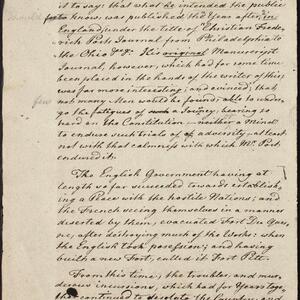 is to say that what he intended the public
to know, was published the Year after, in
England, under the title of Christian Frede-
rick Post's Journal from Philadelphia to
the Ohio &c. &c. His original Manuscript
Journal, however, which had for some time
been placed in the hands of the writer of this,
was far more interesting; and evinced, that
few
not many Men would be found, able to under-
go the fatigues of such a Journey, bearing so
hard on the Constitution — neither a Mind
to endure such trials of adversity, at least
not with that calmness with which Mr. Post
endured it.
The English Government having at
length so far succeeded towards establish-
ing a Peace with the hostile Nations; and
the French seeing themselves in a manner
deserted by them, evacuated Fort Du Ques-
ne, after destroying much of the Works: when
the English took possession; and having
built a new Fort, called it Fort Pitt.
From this time, the troubles and mur-
derous incursions, which had for Years toge-
ther continued to desolate the Country, and